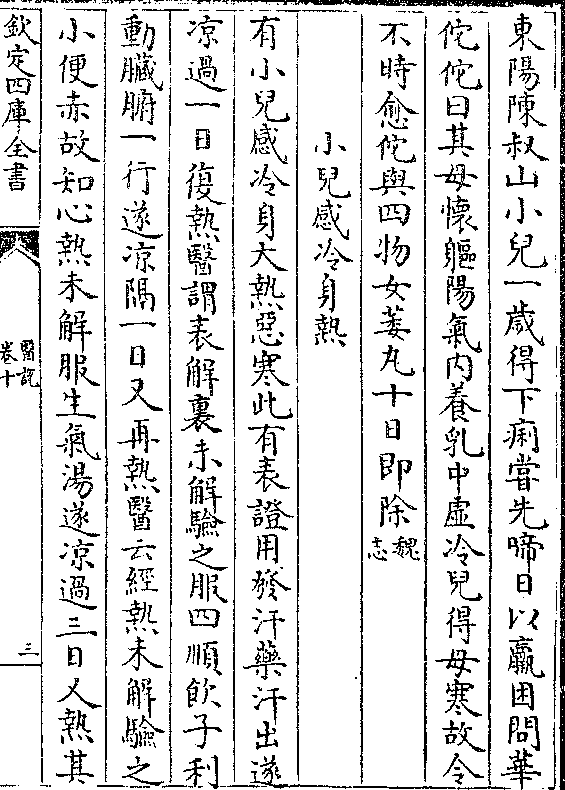 東陽陳叔山小兒一歳得下痢嘗先啼日以羸困問華
佗佗曰其母懷軀陽氣内養乳中虚冷兒得母寒故令
不時愈佗與四物女萎丸十日即除魏志
小兒感冷身熱
有小兒感冷身大熱惡寒此有表證用發汗藥汗出遂
凉過一日復熱醫謂表解裏未解驗之服四順飲子利
動臟腑一行遂凉隔一日又再熱醫云經熱未解驗之
小便赤故知心熱未解服生氣湯遂凉過三日又熱其
欽定四庫全書
醫説
卷十
三